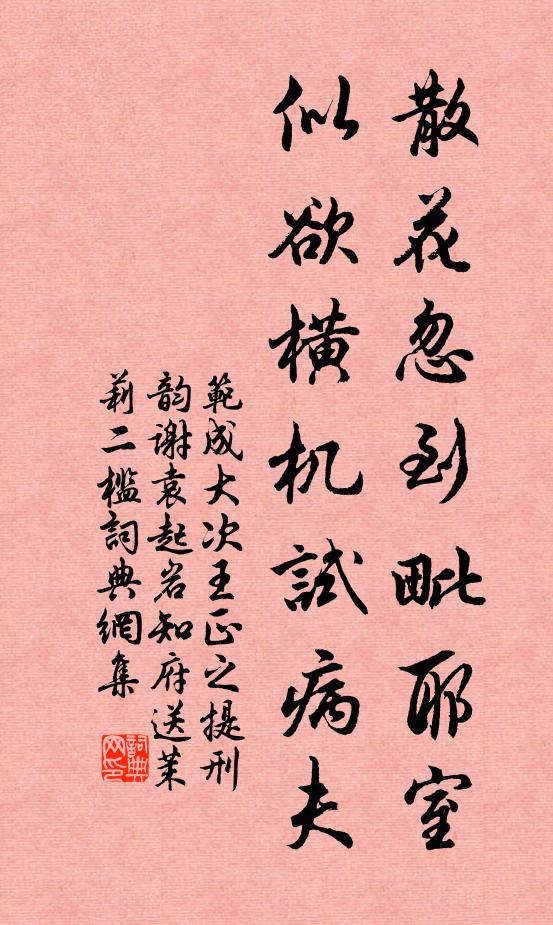 散花忽到毗耶室
似欲横机試病夫
範成大次王正之提刑
韵謝袁起岩知府送茉
莉二檻詞典網集
詞典
网印